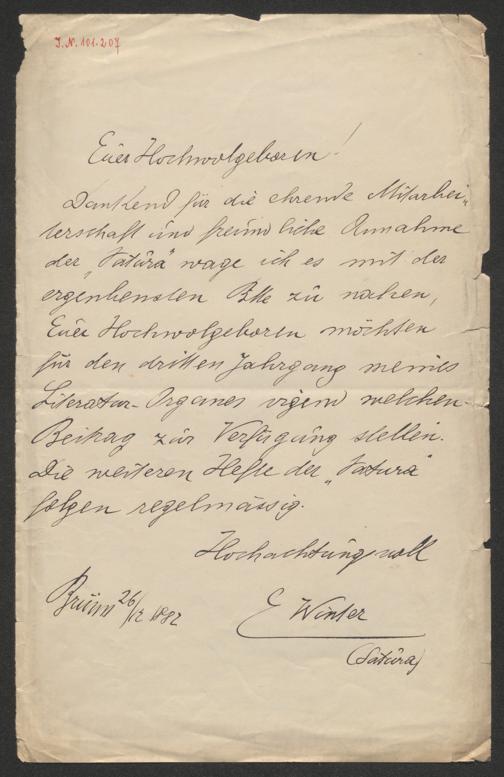 J.N. 101.207
Euer Hochwolgeboren!
Dankend für die ehrende Mitarbei-
terschaft und freundliche Annahme
der „Satura“ wage ich es mit der
ergenbensten Bitte zu nahen,
Euer Hochwolgeboren möchten
für den dritten Jahrgang meines
Literatur-Organes irgend welchen
Beitrag zur Verfügung stellen.
Die weiteren Hefte der „Satura“
folgen regelmässig.
Hochachtungsvoll
Brünn 26/12 1882
E Winter
(Satura)